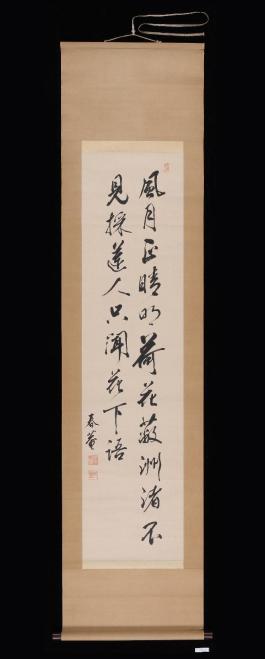 風月正晴明荷花蔽洲渚不
見採蓮人只聞花下語
春菴